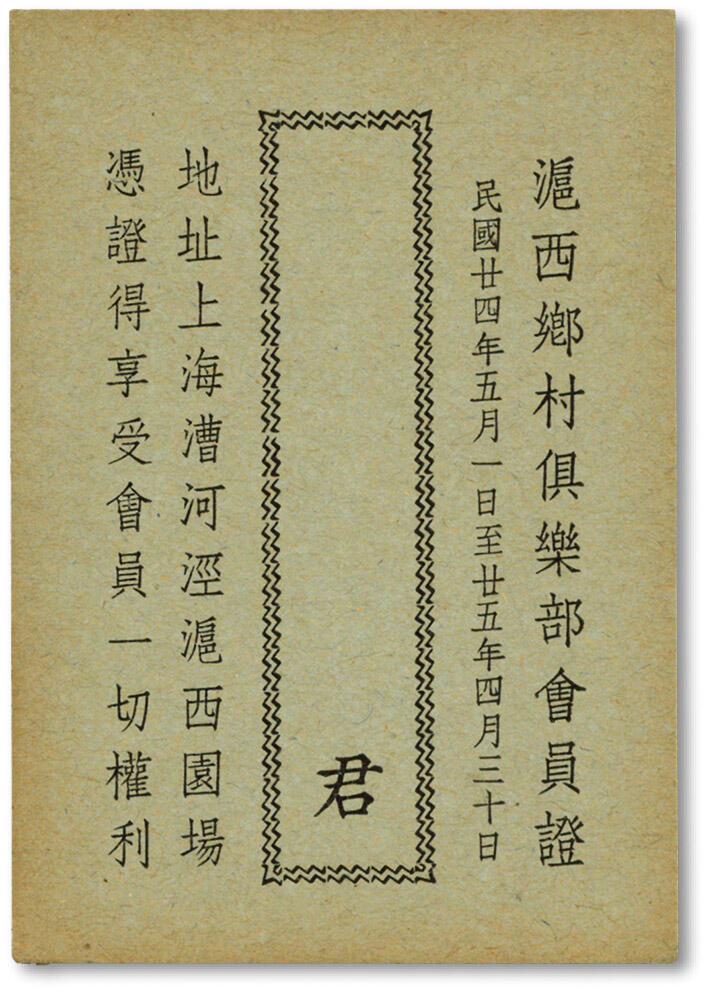 滬西鄉村俱樂部會員證
民國廿四年五月一日至廿五年四月三十日
君
地址上海漕河涇滬西園場
憑證得享受會員一切權利